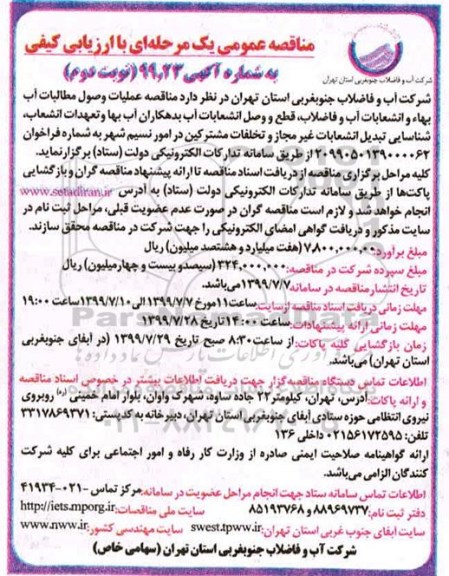 مناقصه عمومی یک مرحله‌ای با ارزیابی کیفی
به شماره آگهی ۹۹٫۲۳ (نوبت دوم)
شرکت آب و فاضلاب جنوبغربی استان تهران
شرکت آب و فاضلاب جنوبغربی استان تهران در نظر دارد مناقصه عملیات وصول مطالبات آب
بهاء و انشعابات آب و فاضلاب، قطع و وصل انشعابات آب بدهکاران آب بها و تعهدات انشعاب،
شناسایی تبدیل انشعابات غیر مجاز و تخلفات مشترکین در امور نسیم شهر به شماره فراخوان
۲۰۹۹۰۵۰۱۳۹۰۰۰۰۶۲ از طریق سامانه تدارکات الکترونیکی دولت (ستاد) برگزار نماید.
کلیه مراحل برگزاری مناقصه از دریافت اسناد مناقصه تا ارائه پیشنهاد مناقصه گران و بازگشایی
پاکت‌ها از طریق سامانه تدارکات الکترونیکی دولت (ستاد) به آدرس www.setadiran.ir
انجام خواهد شد و لازم است مناقصه گران در صورت عدم عضویت قبلی، مراحل ثبت نام در
سایت مذکور و دریافت گواهی امضای الکترونیکی را جهت شرکت در مناقصه محقق سازند.
مبلغ برآورد: ۷٫۸۰۰٫۰۰۰٫۰۰۰ (هفت میلیارد و هشتصد میلیون) ریال
مبلغ سپرده شرکت در مناقصه: ۳۲۴٫۰۰۰٫۰۰۰ (سیصدو بیست و چهارمیلیون) ریال
تاریخ انتشار مناقصه در سامانه ۱۳۹۹/۷/۷ می‌باشد.
مهلت زمانی دریافت اسناد مناقصه از سایت: ساعت ۱۱ مورخ ۱۳۹۹/۷/۷ الی ۱۳۹۹/۷/۱۰ ساعت ۱۹:۰۰
مهلت زمانی ارائه پیشنهادات: ساعت ۱۴:۰۰ تاریخ ۱۳۹۹/۷/۲۸
زمان بازگشایی کلیه پاکات: از ساعت ۸:۳۰ صبح تاریخ ۱۳۹۹/۷/۲۹ (در آبفای جنوبغربی
استان تهران) می‌باشد.
اطلاعات تماس دستگاه مناقصه گزار جهت دریافت اطلاعات بیشتر در خصوص اسناد مناقصه
و ارائه پاکات: آدرس، تهران، کیلومتر ۲۲ جاده ساوه، شهرک واوان، بلوار امام خمینی (ره) روبروی
نیروی انتظامی حوزه ستادی آبفای جنوبغربی استان تهران، دبیرخانه به کدپستی: ۳۳۱۷۸۶۹۳۷۱
تلفن: ۰۲۱۵۶۱۷۲۵۹۵ داخلی ۱۳۶
ارائه گواهینامه صلاحیت ایمنی صادره از وزارت کار رفاه و امور اجتماعی برای کلیه شرکت
کنندگان الزامی می‌باشد.
اطلاعات تماس سامانه ستاد جهت انجام مراحل عضویت در سامانه: مرکز تماس ۰۲۱-۴۱۹۳۴
دفتر ثبت نام: ۸۸۹۶۹۷۳۷ و ۸۵۱۹۳۷۶۸ سایت ملی مناقصات: http://iets.mporg.ir
سایت آبفای جنوب غربی استان تهران: swest.tpww.ir سایت مهندسی کشور: www.nww.ir
شرکت آب و فاضلاب جنوبغربی استان تهران (سهامی خاص)